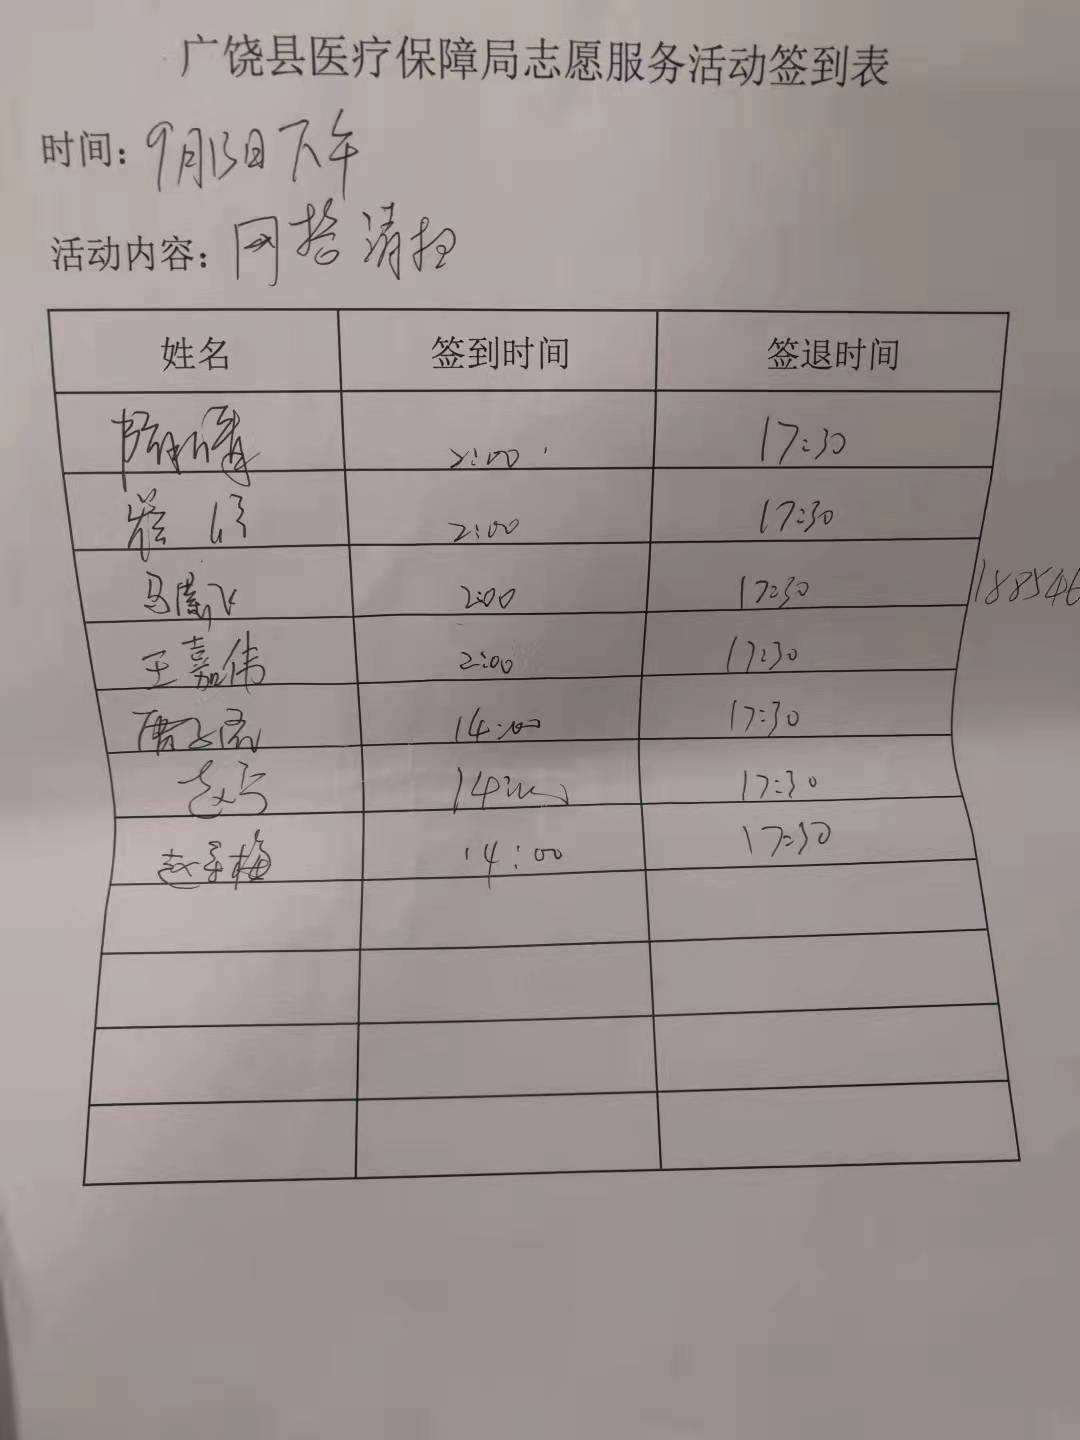 广饶县医疗保障局志愿服务活动签到表
时间：9月13日下午
活动内容：网格清扫
姓名 签到时间 签退时间
2:00 17:30
2:00 17:30
马 飞 2:00 17:30 188546
王嘉伟 2:00 17:30
14:00 17:30
赵 14:00 17:30
赵 梅 14:00 17:30